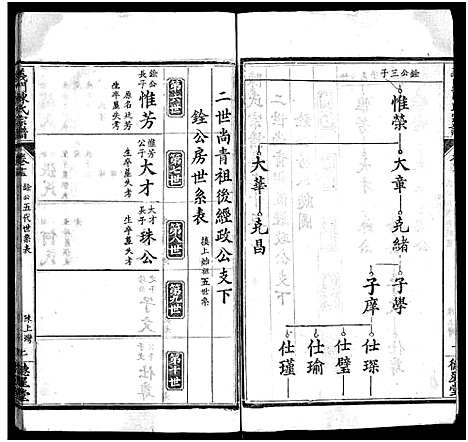 銓公三子
惟榮
大章
大華
堯緒
堯昌
子學
子庠
仕琛
仕璧
仕瑜
仕瑾
二世尚青祖後經政公支下
銓公房世系表
接上始祖五世系
第六世
第七世
第八世
第九世
第十世
銓公長子
惟芳
原名廷芳
生卒墓失考
惟芳公子
大才
生卒墓失考
大才公子
珠公
生卒墓失考
義門陳氏宗譜
銓公五代世系表
珠上灣
二
德星堂